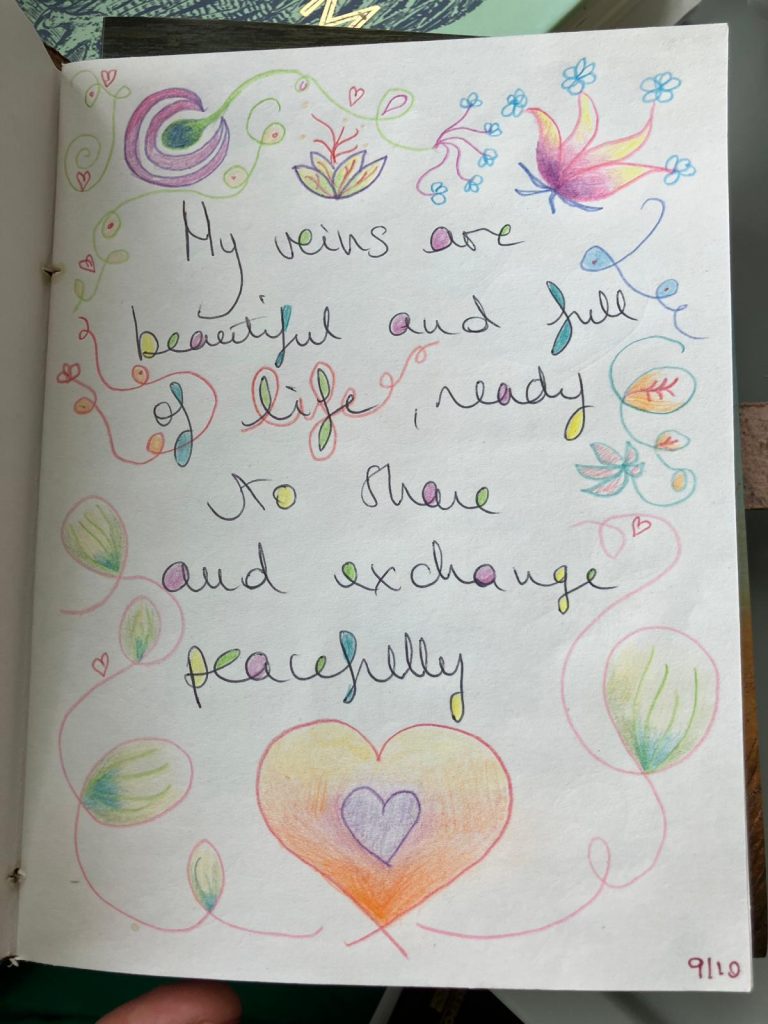 My veins are
beautiful and full
of life, ready
to share
and exchange
peacefully
9/10